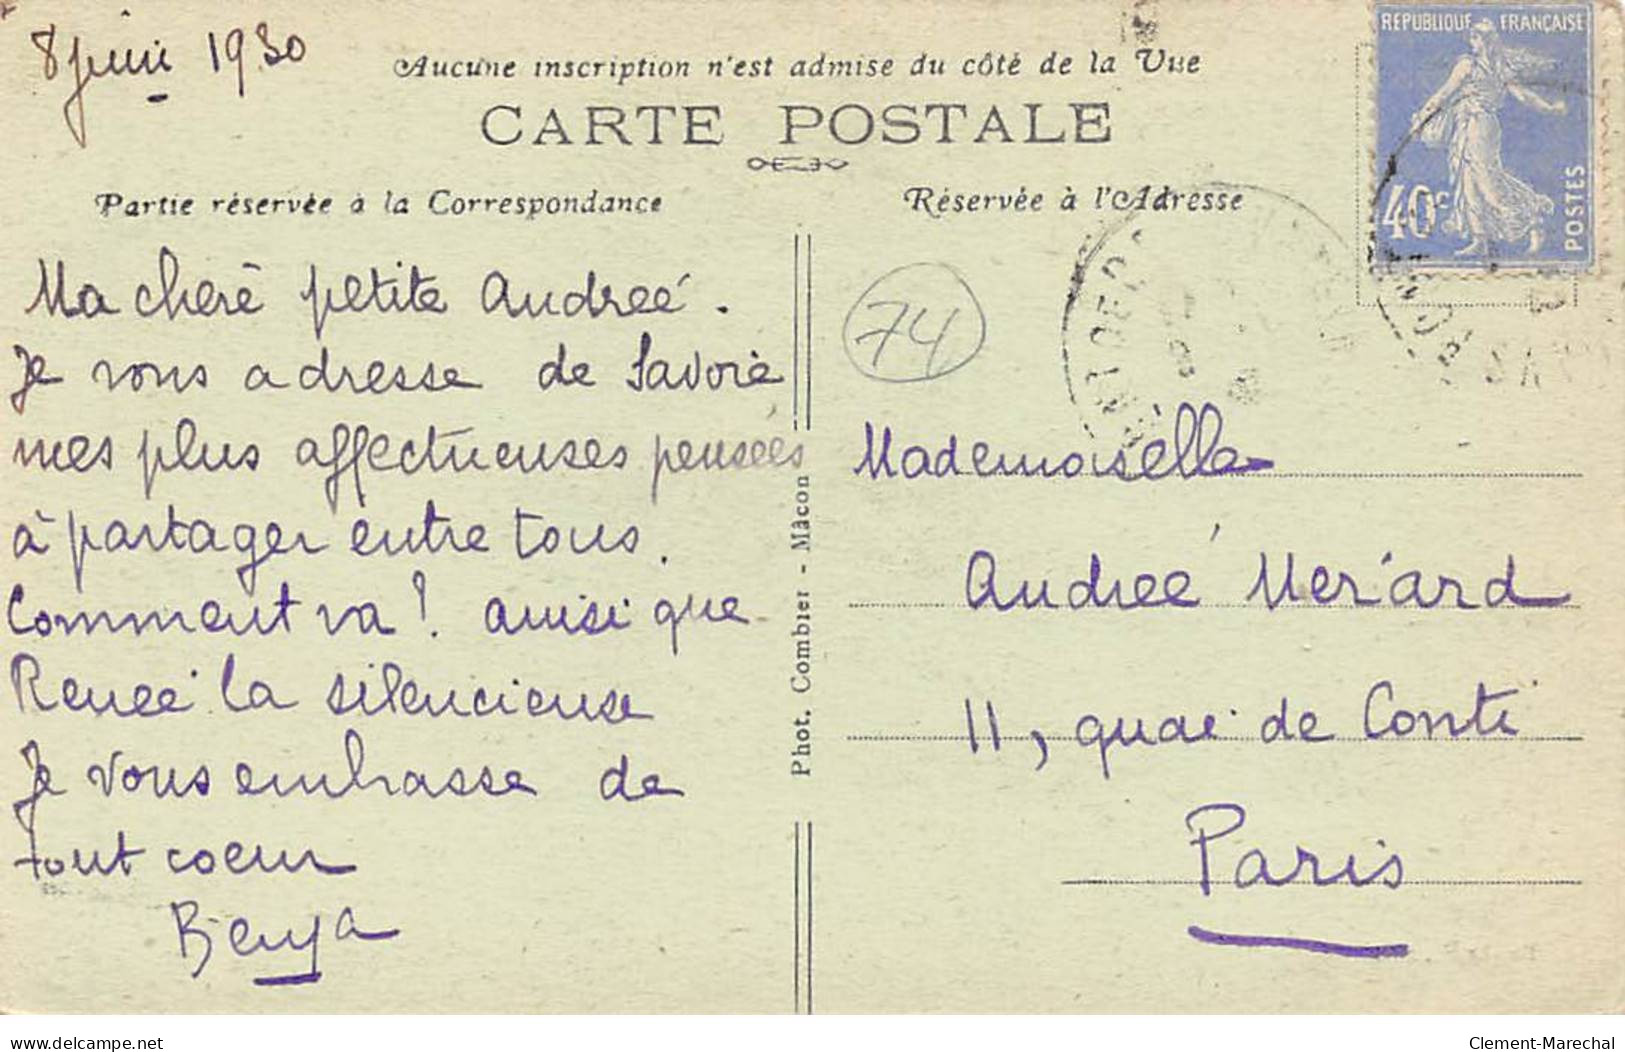 8 juin 1930
Aucune inscription n'est admise du côté de la Vue
CARTE POSTALE
Partie réservée à la Correspondance
Réservée à l'Adresse
REPUBLIQUE FRANÇAISE
40c
POSTES
74
Ma cherè petite Andreé.
Je vous adresse de Savoie
mes plus affectueuses pensées
à partager entre tous.
Comment va! ainsi que
Reneé la silencieuse
Je vous embrasse de
tout coeur
Benya
Phot. Combier - Mâcon
Mademoiselle
Andreé Merard
11, quai de Conti
Paris
delcampe.net
Clement-Marechal